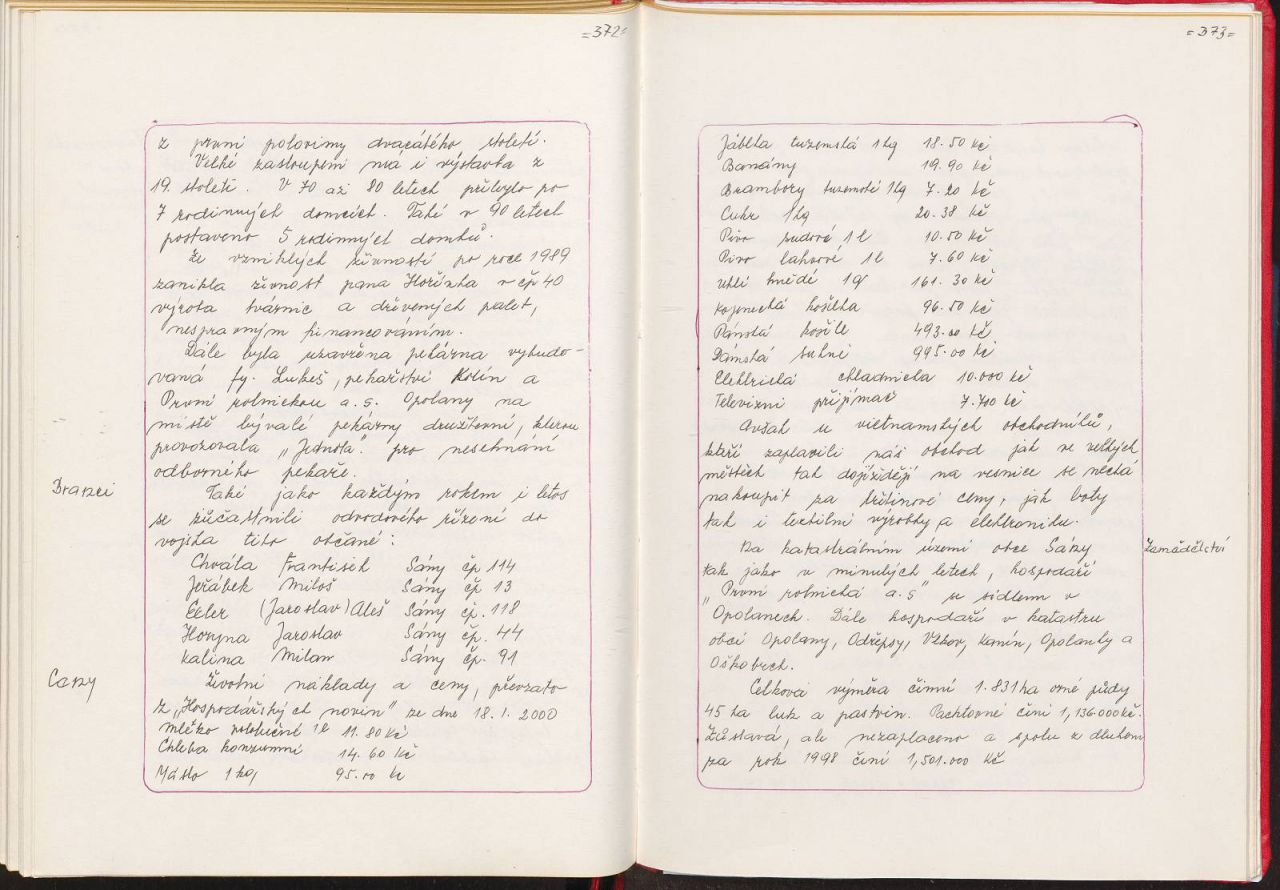 =372=
z první polovimy dvacátého století.
Velké zastoupení má i výstavba z
19. století. V 70 až 80 letech přibylo po
7 rodinných domcích. Také v 90 letech
postaveno 5 rodinných domků.
Ze vzniklých živností po roce 1989
zanikla živnost pana Hořínka v čp 40
výroba tvárnic a dřevených palet,
nespravným financovaním.
Dále byla uzavřena pekárna vybudo-
vaná fy. Lukeš, pekařství Kolín a
První rolnickou a.s. Opolany na
místě bývalé pekárny družtevní, kterou
provozovala "Jednota" pro nesehnání
odborného pekaře.
Branci
Také jako každým rokem i letos
se zůčastnili odvodového řízení do
vojska tito občané:
Chvála František Sány čp 114
Jeřábek Miloš Sány čp 13
Ecler (Jaroslav) Aleš Sány čp. 118
Horyna Jaroslav Sány čp. 44
Kalina Milan Sány čp. 91
Ceny
Životní náklady a ceny, převzato
z „Hospodářských novin" ze dne 18.1. 2000
mléko polotučné 1l 11.80 Kč
Chleba konzumní 14.60 Kč
Máslo 1 kg 95.00 Kč
=373=
Jáblka tuzemská 1 kg 18.50 Kč
Banány 19.90 Kč
Brambory tuzemské 1kg 7.20 Kč
Cukr 1 kg 20.38 Kč
Pivo sudové 1 l 10.50 Kč
Pivo lahvové 1l 7.60 Kč
Uhlí hnědé 1q 161.30 Kč
Kojenecká košilka 96.50 Kč
Pánská košile 493.00 Kč
Dámská sukně 995.00 Kč
Elektrická chladnička 10.000 Kč
Televizní přijímač 7.740 Kč
Avšak u vietnamských obchodníků,
kteří zaplavili náš obchod jak ve velkých
městech tak dojíždějí na vesnice se nechá
nakoupit za třetinové ceny, jak boty
tak i textilní výrobky a elektroniku.
Zemědělství
Na katastrálním území obce Sány
tak jako v minulých letech, hospodaří
„První rolnická a.s" se sídlem v
Opolanech. Dále hospodaří v katastru
obcí Opolany, Odřepsy, Vlkov, Kanín, Opolánky a
Oškobrh.
Celková výměra činní 1.831 ha orné půdy
45 ha luk a pastvin. Pachtovné činí 1,136.000 Kč.
Zůstavá, ale nezaplaceno a spolu z dluhem
za rok 1998 činí 1,501.000 Kč